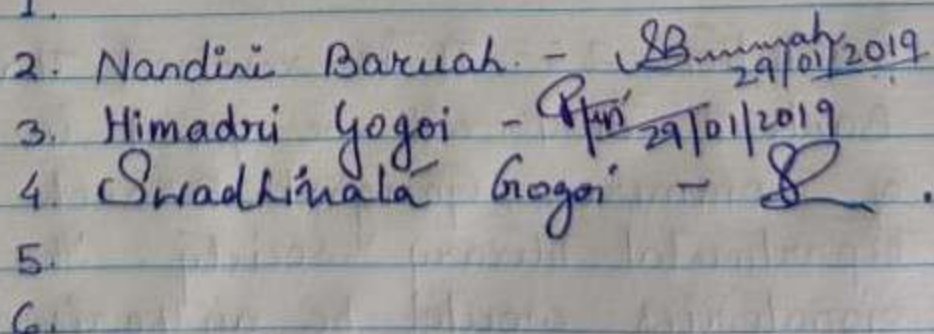 1.
2. Nandini Baruah - 29/01/2019
3. Himadri Gogoi - 29/01/2019
4. Swadhinata Gogoi - .
5.
6.